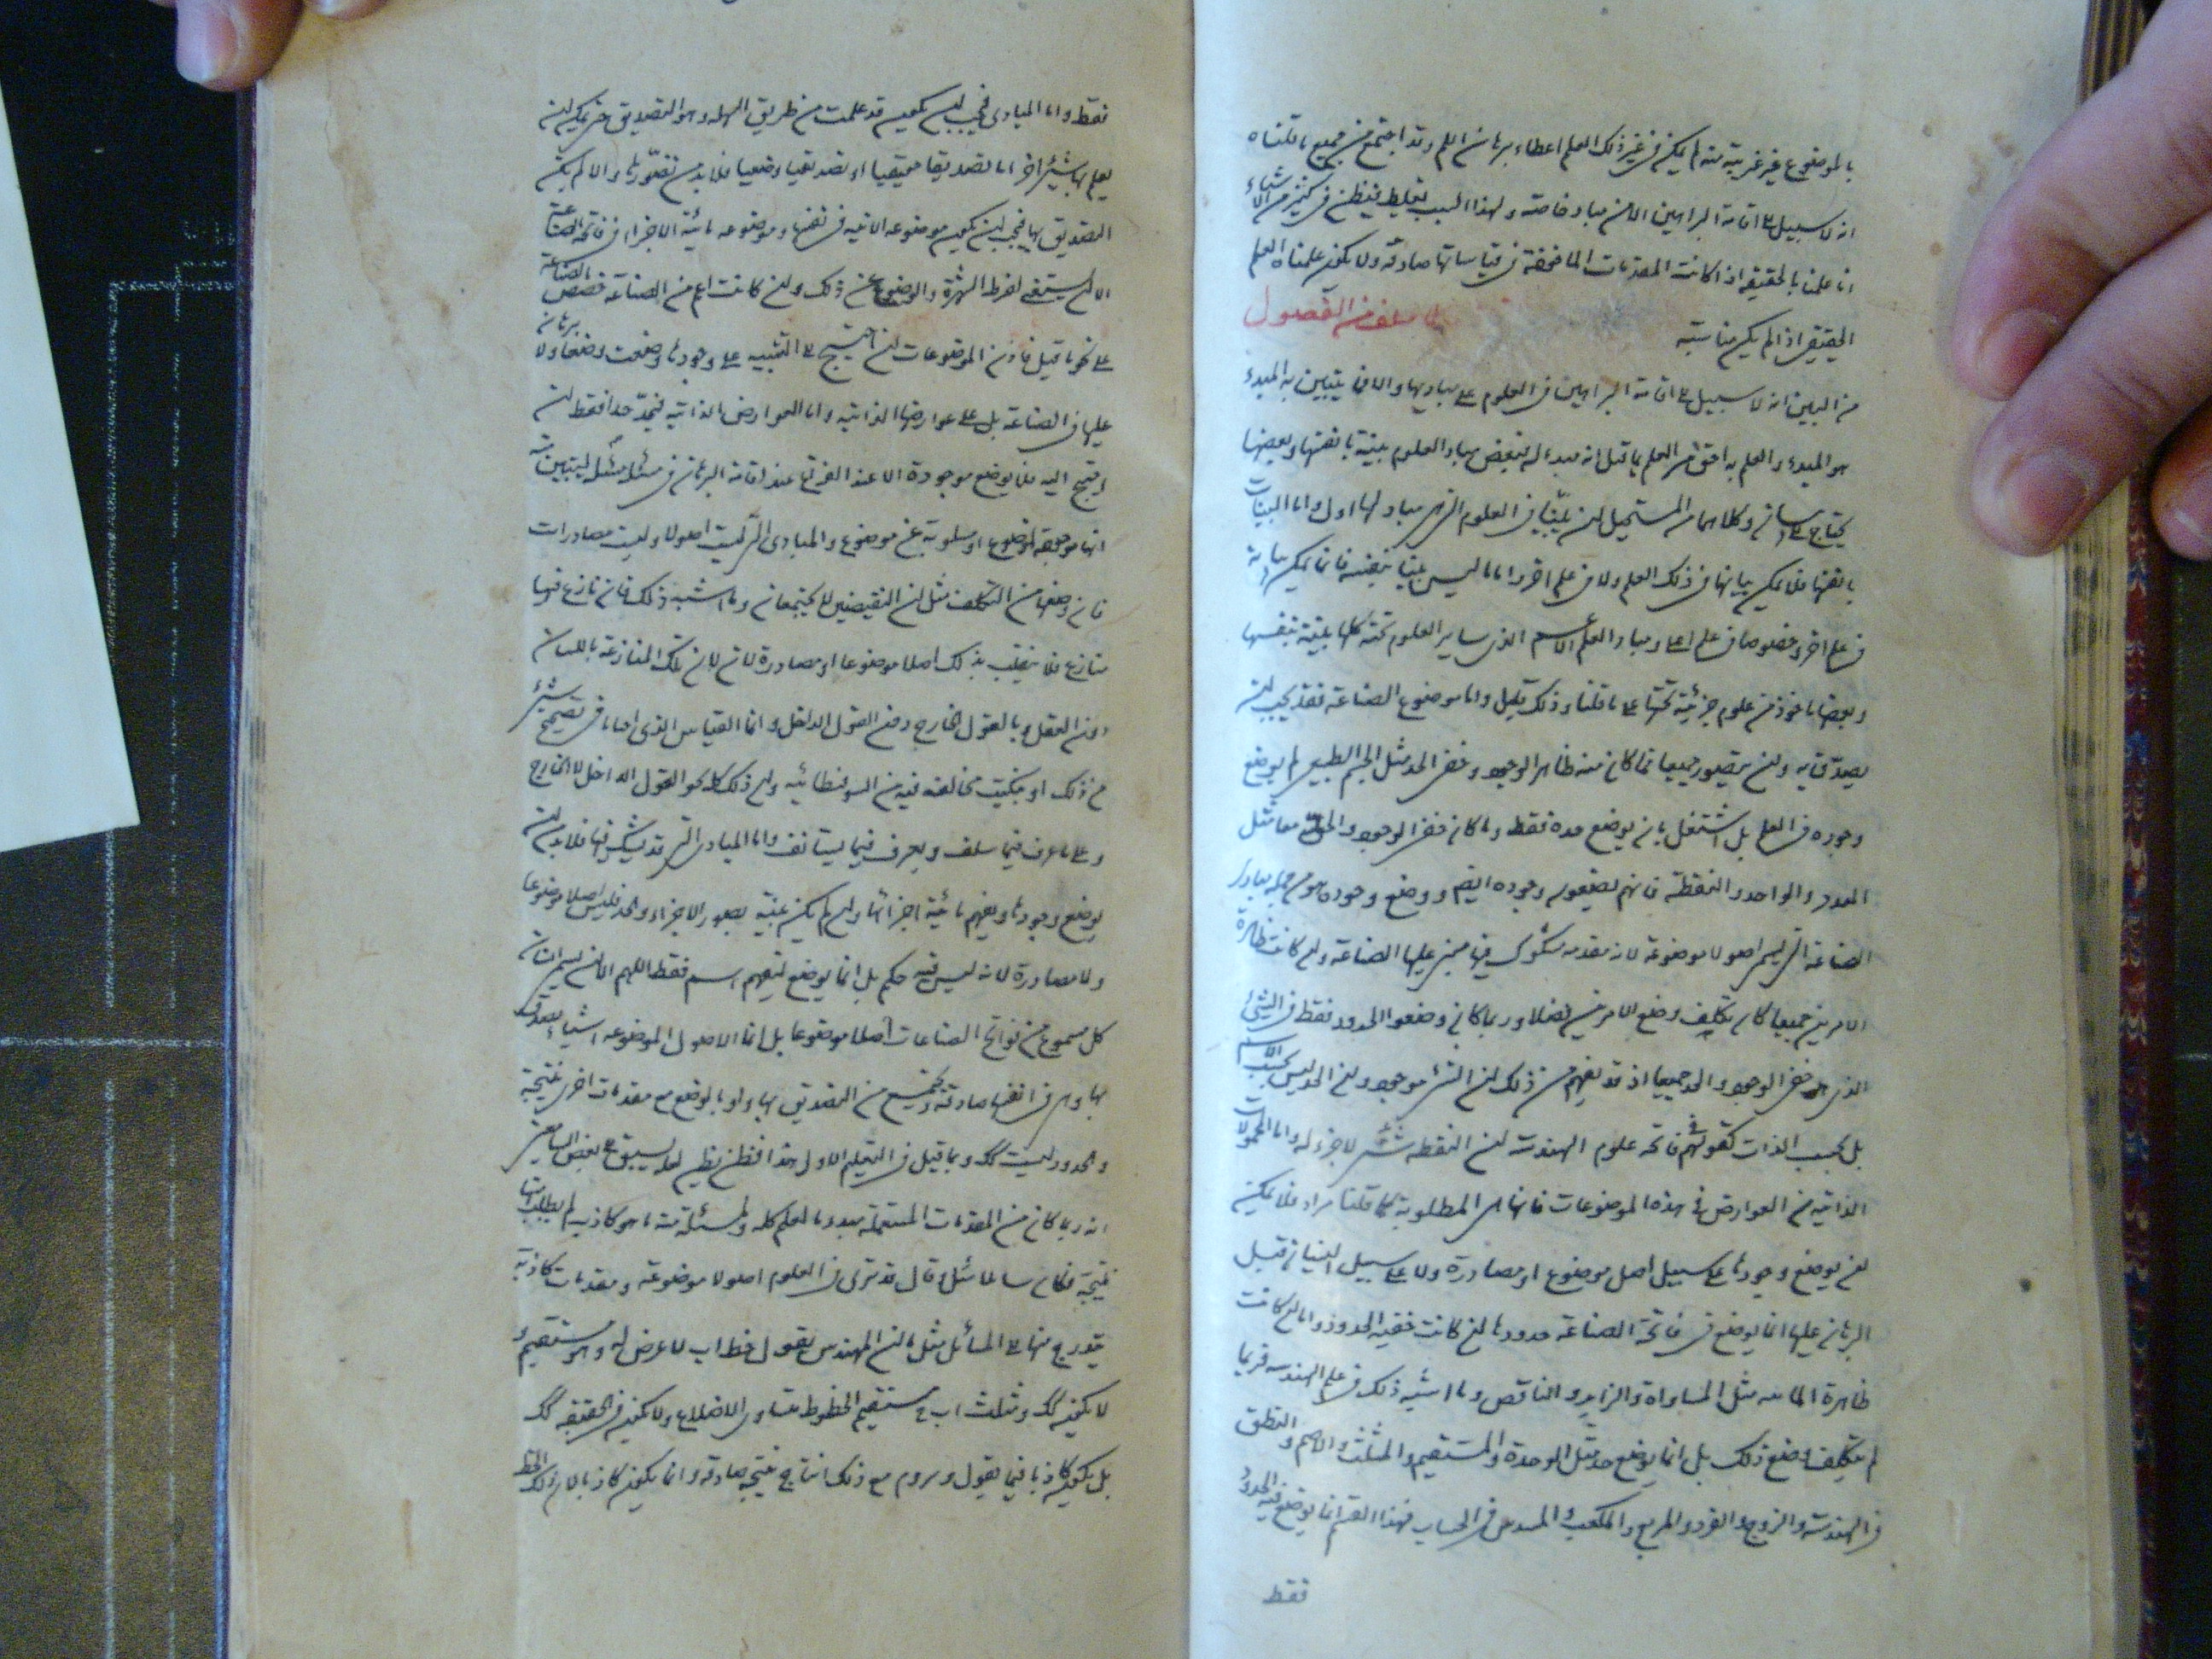 بالموضوع غير غريبة منه لم يكن في غير ذلك العلم اعطاء برهان اللم وقد اجتمع من جميع ما قلناه
انه لا سبيل الى اقامة البراهين الا من مباد خاصة ولهذا السبب يغلط فيظن في كثير من الاشياء
انا علمنا بالحقيقة اذا كانت المقدمات الماخوذة في قياساتها صادقة ولا يكون علمناه العلم
الحقيقي اذا لم يكن مناسبة سلف من الفصول
من البين انه لا سبيل الى اقامة البراهين في العلوم على مباديها والا فما يتبين به المبدء
هو المبدء والعلم به احق من العلم بما قبل انه مبدء له فبعض مباد العلوم بينة بانفسها وبعضها
يحتاج الى بيان وكلاهما من المستحيل ان يتبين في العلوم التي هي مباد لها اولى واما البينات
بانفسها فلا يمكن بيانها في ذلك العلم ولا في علم اخر واما ما ليس بينا بنفسه فانما يمكن بيانه
في علم اخر وخصوصا في علم اعلى ومباد العلم الاعم الذي ساير العلوم تحته كلها بينة بنفسها
وبعضها ماخوذ من علوم جزئية تحتها على ما قلنا وذلك قليل واما موضوع الصناعة فقد يجب ان
يصدق به وان يتصور جميعا فما كان منه ظاهر الوجود خفي الحد مثل الجسم الطبيعي لم يوضع
وجوده في العلم بل اشتغل بان يوضع حده فقط وما كان خفي الوجود والحد معا مثل
العدد والواحد والنقطة فانهم يضعون وجوده ايضا ووضع وجوده هو من جملة مبادى
الصناعة التي تسمى اصولا موضوعة لانه مقدمة مشكوك فيها مبنى عليها الصناعة وان كانت ظاهرة
الامرين جميعا كان تكلف وضع الامرين فضلا وربما كان وضعوا الحدود فقط في الشئ
الذي هو خفي الوجود والحد جميعا اذ قد يفهم من ذلك ان الشئ موجود وان الحد ليس بحسب الاسم
بل بحسب الذات كقولهم في فاتحة علوم الهندسة ان النقطة شئ لا جزء له واما المحمولات
الذاتية من العوارض في هذه الموضوعات فانها هي المطلوبة كما قلنا مرارا فلا يمكن
ان يوضع وجودها على سبيل اصل موضوع او مصادرة ولا على سبيل البيان قبل
البرهان عليها انما يوضع في فاتحة الصناعة حدودها ان كانت خفية الحدود واما ان كانت
ظاهرة الماهية مثل المساواة والزايد والناقص وما اشبه ذلك في علم الهندسة فربما
لم يتكلف وضع ذلك بل انما يوضع حد مثل الوحدة والمستقيم والمثلث والاصم والمنطق
في الهندسة والزوج والفرد والمربع والمكعب والمسدس في الحساب فهذا القسم انما يوضع فيه الحدود
فقط
فقط واما المبادى فيجب ان يكون قد علمت من طريق الهلية وهو التصديق حتى يمكن ان
يعلم بها شئ اخر اما تصديقا حقيقيا او تصديقيا وضعيا فلا بد من تصورها والا لم يكن
التصديق بها فيجب ان يكون موضوعه الانية في نفسها وموضوعه مائية الاجزاء في فاتحة الصناعة
الا ان يستغنى لفرط الشهرة والوضوح عن ذلك وان كانت اعم من الصناعة خصص بالصناعة
على نحو ما قيل فاذن الموضوعات ان احتيج الى التنبيه على وجودها وضعت وضعا ولا برهان
عليها في الصناعة بل على عوارضها الذاتية واما العوارض الذاتية فتحد حدا فقط ان
احتيج اليه فلا يوضع موجودة الا عند الفراغ عند اقامة البرهان في مسئلة مسئلة ليتبين منه
انها موجودة لموضوع او مسلوبة عن موضوع والمبادى التي ليست اصولا وليست مصادرات
فان وضعها من التكلف مثل ان النقيضين لا يجتمعان وما اشبه ذلك فان نازع فيها
منازع فلا ينقلب بذلك اصلا موضوعا او مصادرة لان تلك المنازعة باللسان
دون العقل وبالقول الخارج دون القول الداخل وانما القياس الذي اما في تصحيح شئ
من ذلك او تبكيت مخالفه فيه من السوفسطائية ولان ذلك كله نحو القول الداخل لا الخارج
وعلى ما عرف فيما سلف ويعرف فيما يستانف واما المبادى التي قد يشك فيها فلا بد من ان
يوضع وجودها ويفهم مائية اجزائها وان لم يكن بينة بصور الاجزاء والحد فليس اصلا موضوعا
ولا مصادرة لانه ليس فيه حكم بل انما يوضع لتفهيم اسم فقط اللهم الا ان يسمى انسان
كل مسموع من فواتح الصناعات اصلا موضوعا بل انما الاصول الموضوعة اشياء يصدق
بها وهي في انفسها صادقة ويجتمع من التصديق بها ولو بالوضع مع مقدمات اخرى نتيجة
والحدود ليست كك ومما قيل في التعليم الاول هذا فظن ظن لعله يسبق الى بعض السامعين
انه ربما كان من المقدمات المستعملة مبدء ما لعلم كله ولمسئلة منه ما هو كاذب ثم يطلب منها
نتيجة فكان سائلا سئل وقال قد نرى في العلوم اصولا موضوعة ومقدمات كاذبة
يتدرج منها الى المسائل مثل ان المهندس يقول خط اب لا عرض له وهو مستقيم و
لا يكون كك ومثلث اب ج مستقيم الخطوط متساوي الاضلاع ولا يكون في الحقيقة كك
بل يكون كاذبا فيما يقول ويروم مع ذلك انتاج نتيجة صادقة وانما يكون كاذبا لان ذلك الخط